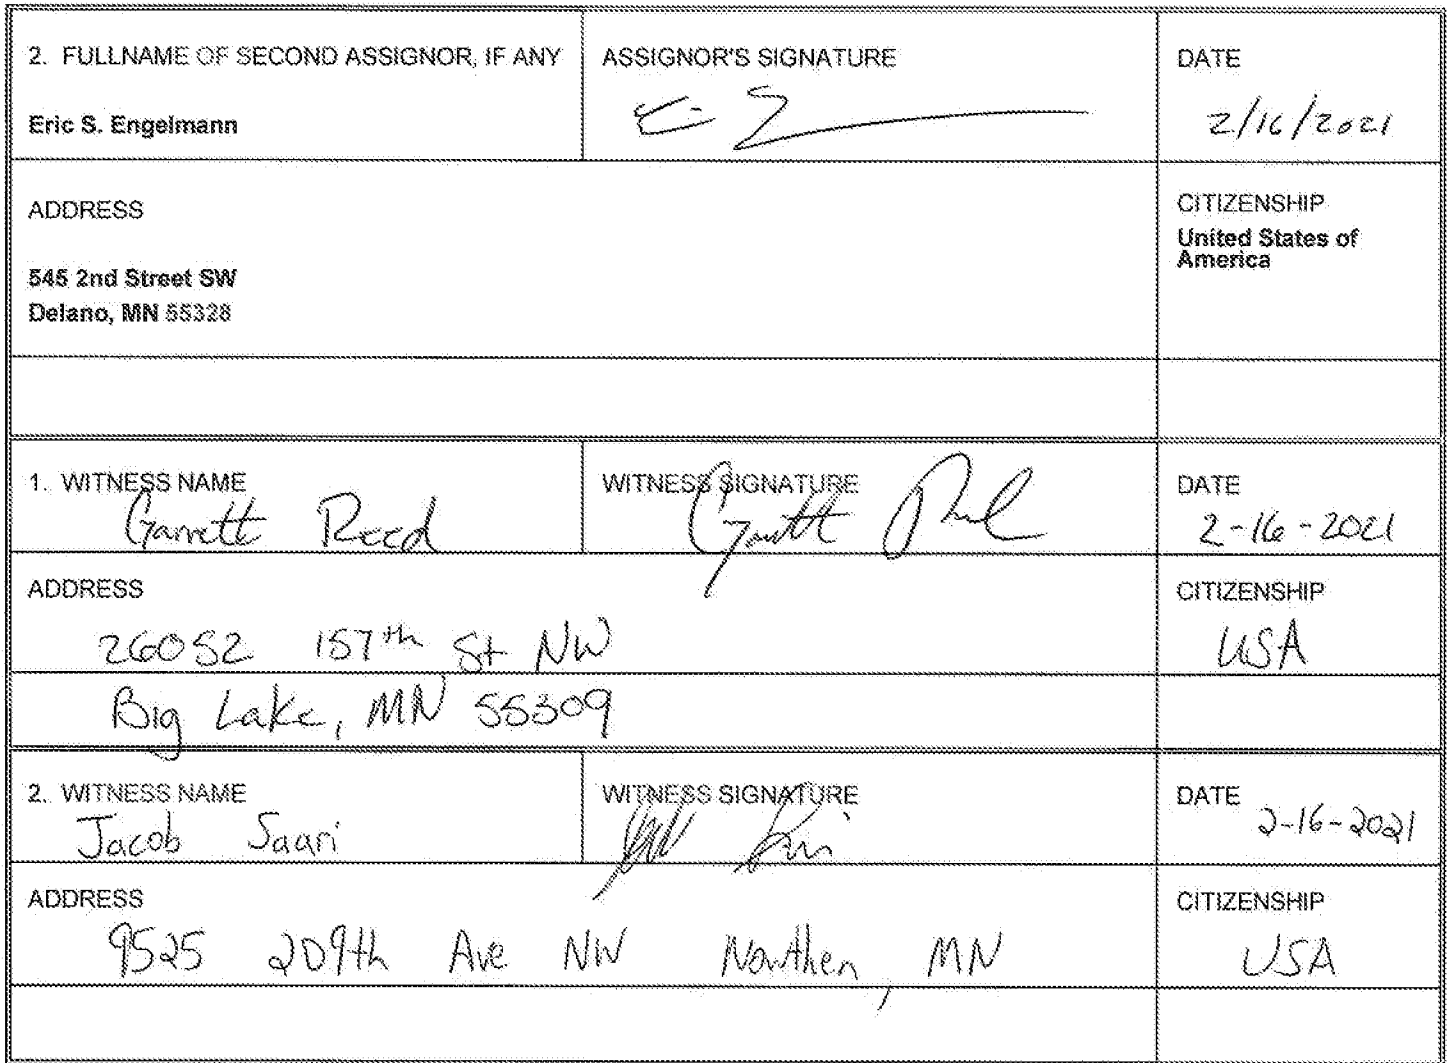 2. FULLNAME OF SECOND ASSIGNOR, IF ANY
Eric S. Engelmann
ASSIGNOR'S SIGNATURE
DATE
2/16/2021
ADDRESS
545 2nd Street SW
Delano, MN 55328
CITIZENSHIP
United States of
America
1. WITNESS NAME
Garrett Reed
WITNESS SIGNATURE
DATE
2-16-2021
ADDRESS
26052 157th St NW
Big Lake, MN 55309
CITIZENSHIP
USA
2. WITNESS NAME
Jacob Saari
WITNESS SIGNATURE
DATE
2-16-2021
ADDRESS
9525 209th Ave NW Nowthen, MN
CITIZENSHIP
USA